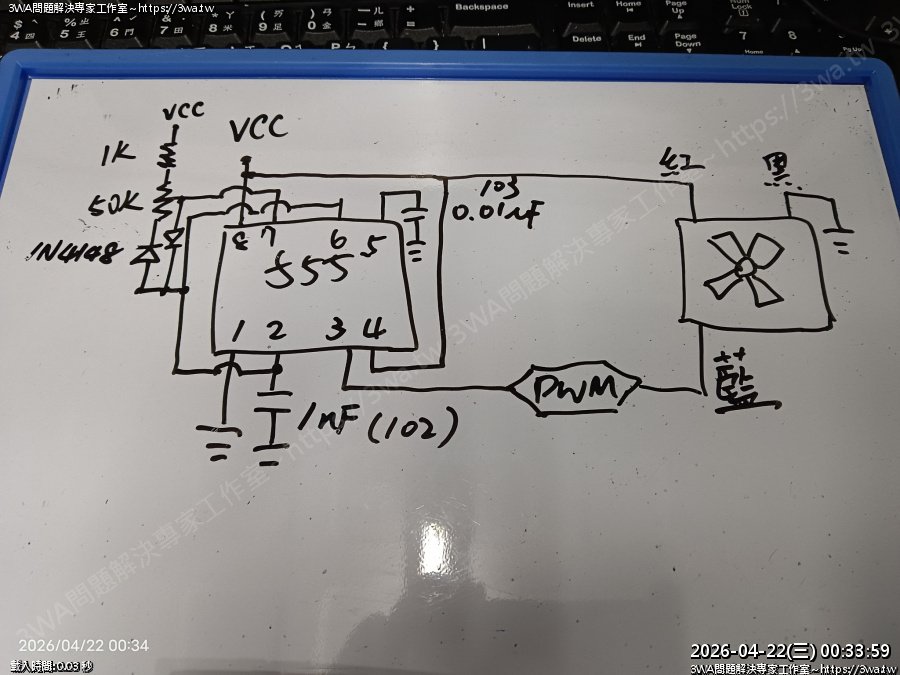 3WA問題解決專家工作室~https://3wa.tw
Backspace
Insert
Home
Page Up
Num Lock
Delete
End
Page Down
7
Home
8
PgUp
VCC
VCC
1K
50K
1N4148
103
0.01uF
紅
黑
8 7 6 5
555
1 2 3 4
PWM
藍
1nF (102)
3WA問題解決專家工作室~https://3wa.tw
2026/04/22 00:34
載入時間:0.03 秒
2026-04-22(三) 00:33:59
3WA問題解決專家工作室~https://3wa.tw